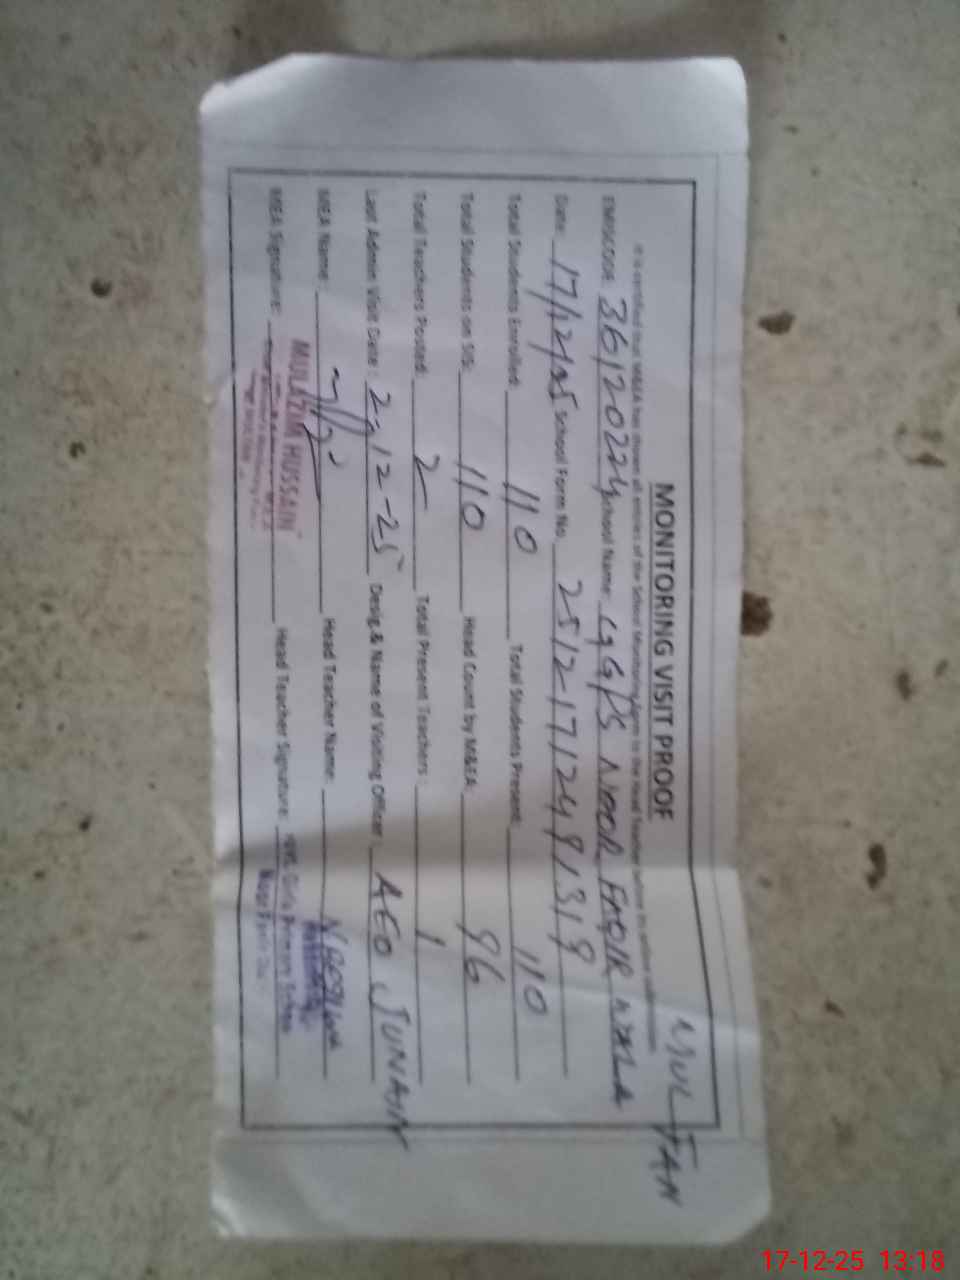 MULTAN
MONITORING VISIT PROOF
It is certified that M&EA has shown all entries of the School Monitoring to the Head Teacher before
EMISCODE: 36120224 School Name: GGPS NOOR FAQIR WALA
Date: 17/12/25 School Form No. 2512-171249/1319
Total Students Enrolled: 110 Total Students Present: 110
Total Students on SIS: 110 Head Count by M&EA: 96
Total Teachers Posted: 2 Total Present Teachers: 1
Last Admin Visit Date: 2-12-25 Desig & Name of Visiting Officer AEO JUNAIN
MEA Name: Head Teacher Name:
MULAZIM HUSSAIN
MEA Signature: Head Teacher Signature:
Girls Primary School
17-12-25 13:18